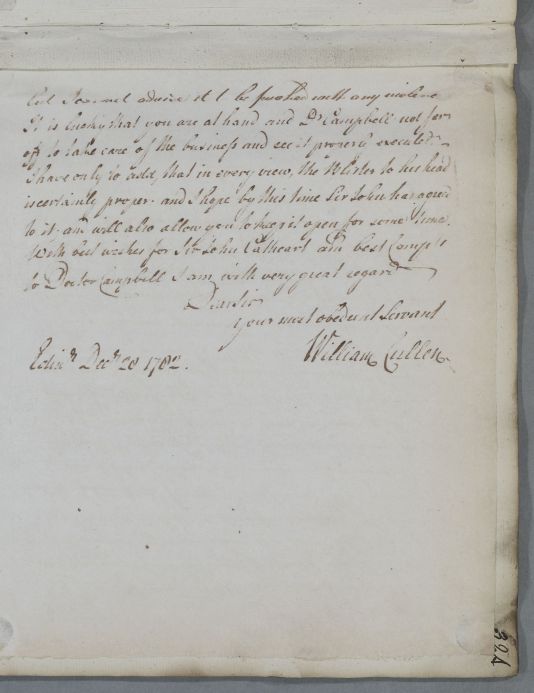 but I cannot advise it to be pushed with any violence
It is lucky that you are at hand and Dr Campbell not far
off to take care of the business and see it properly executed.
I have only to add, that in every view, the Blister to his head
is certainly proper and I hope by this time Sir John has agreed
to it and will also allow you to keep it open for some time.
With best wishes for Sir John Cathcart and best Compts
to Doctor Campbell I am with very great regard
Dear Sir
Your most obedient Servant
William Cullen
Edinr Decr 28 1782.
324